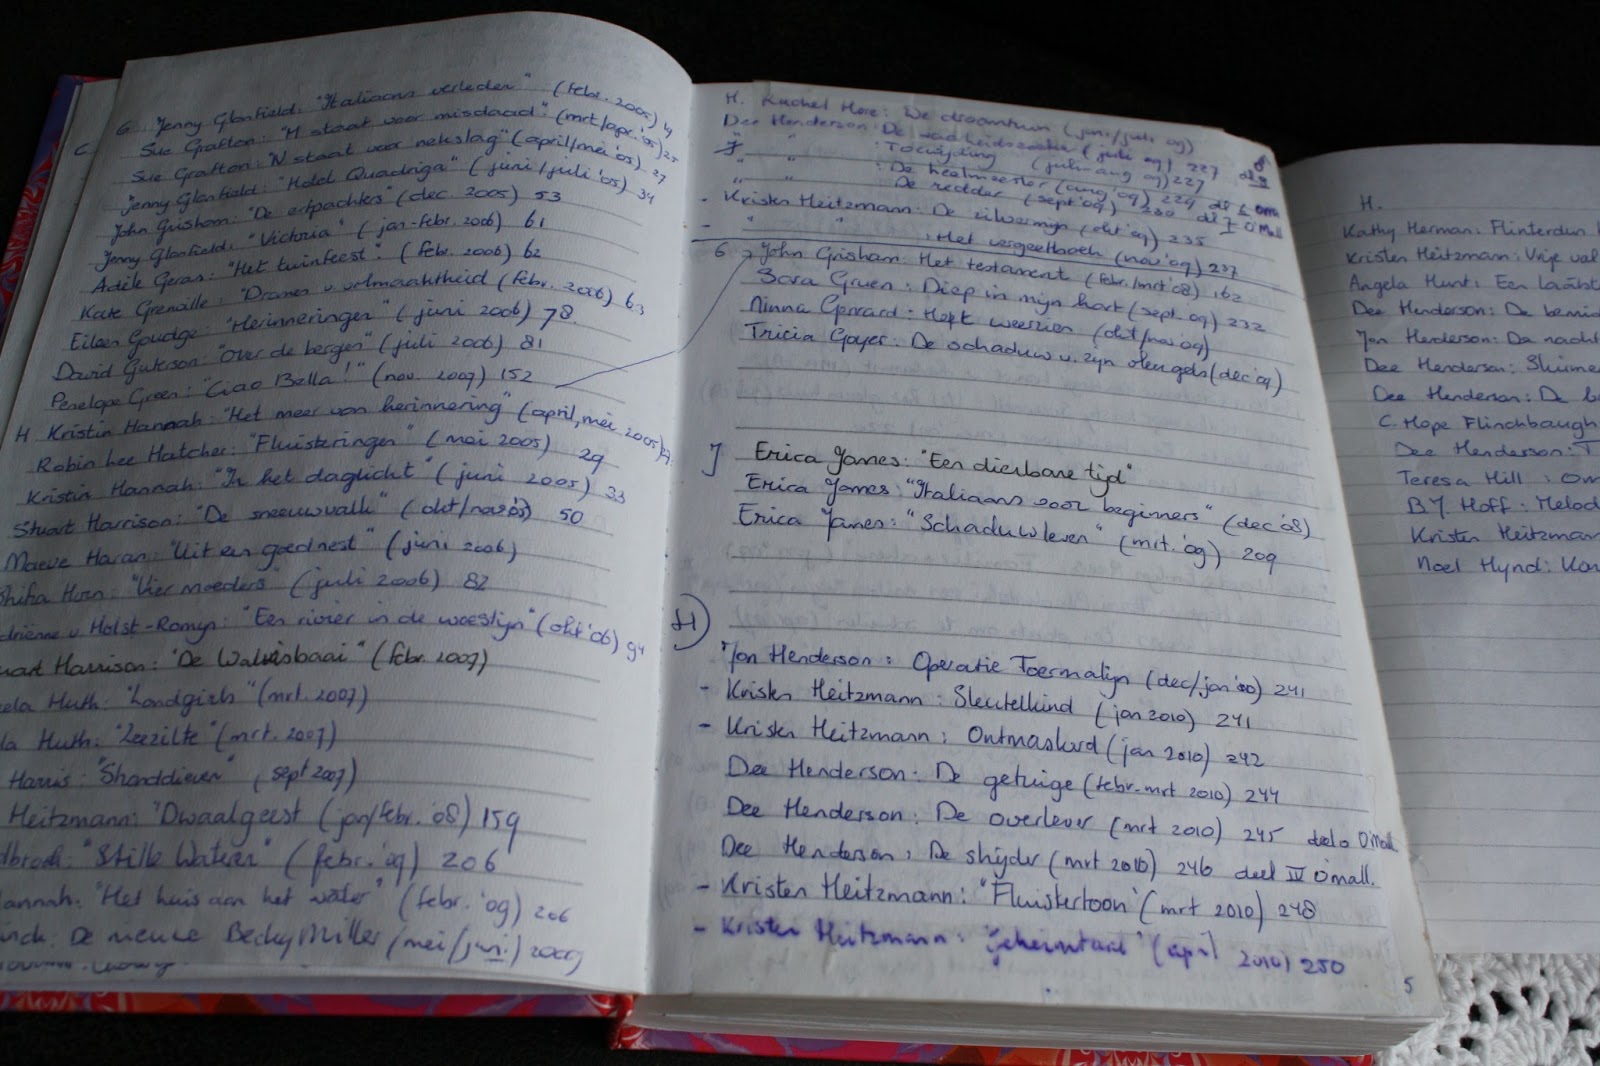 G Jenny Glanfield: "Italiaans verleden" (febr. 2005) 19
Sue Grafton: "M staat voor misdaad" (mrt/apr. '05) 25
Sue Grafton: "N staat voor nekslag" (april/mei '05) 27
Jenny Glanfield: "Hotel Quadriga" (juni/juli '05) 34
John Grisham: "De erfpachters" (dec. 2005) 53
Jenny Glanfield: "Victoria" (jan-febr. 2006) 61
Adèle Geras: "Het tuinfeest". (febr. 2006) 62
Kate Grenville: "Dromen v. volmaaktheid (febr. 2006) 63
Eileen Goudge: "Herinneringen" (juni 2006) 78.
David Guterson: "Over de bergen" (juli 2006) 81
Penelope Green: "Ciao Bella!" (nov. 2007) 152
H Kristin Hannah: "Het meer van herinnering" (april, mei 2005)
Robin Lee Hatcher: "Fluisteringen" (mei 2005) 29
Kristin Hannah: "In het daglicht" (juni 2005) 33
Stuart Harrison: "De sneeuwvalk" (okt/nov '05) 50
Maeve Haran: "Uit een goed nest" (juni 2006)
Shifra Horn: "Vier moeders" (juli 2006) 82
driënne v Holst-Romyn: "Een rivier in de woestijn" (okt '06) 94
uart Harrison: "De Walvisbaai" (febr. 2007)
ela Huth: "Landgirls" (mrt. 2007)
la Huth: "Zeezilte" (mrt. 2007)
Harris: (sept 2007)
Heitzmann: "Dwaalgeest (jan/febr. '08) 159
"Stille Wateren" (febr. '09) 206
annah: "Het huis aan het water" (febr. '09) 206
inch: De nieuwe Becky Miller (mei/juni) 2009
H. Rachel Hore: De droomtuin (juni/juli 09)
Dee Henderson: De waarheidszoeker (juli 09) 227
" " : Toewijding (juli-aug 09) 227
" " : De heelmeester (aug '09) 229
" " De redder (sept '09) 230
- Kristen Heitzmann: De zilvermijn (okt '09) 235
- " " : Het vergeetboek (nov '09) 237
G John Grisham: Het testament (febr./mrt '08) 162
Sara Gruen: Diep in mijn hart (sept. 09) 232
Minna Gerrard: Heft weerzien (okt/nov 09)
Tricia Goyer: De schaduw v. zijn vleugels (dec '09)
J Erica James: "Een dierbare tijd"
Erica James: "Italiaans voor beginners" (dec '08)
Erica James: "Schaduwleven" (mrt. '09) 209
H)
Jon Henderson: Operatie Toermalijn (dec/jan '00) 241
- Kristen Heitzmann: Sleutelkind (jan 2010) 241
- Kristen Heitzmann: Ontmaskerd (jan 2010) 242
Dee Henderson: De getuige (febr-mrt 2010) 244
Dee Henderson: De overlever (mrt 2010) 245 deel 0 O'Mall
Dee Henderson: De strijder (mrt 2010) 246 deel IV O'mall.
- Kristen Heitzmann: "Fluistertoon" (mrt 2010) 248
- Kristen Heitzmann: "Geheimtaal" (april 2010) 250
5
H.
Kathy Herman: Flinterdun
Kristen Heitzmann: Vrije val
Angela Hunt: Een laatst
Dee Henderson: De bemid
Jon Henderson: Da nacht
Dee Henderson:
Dee Henderson: De b
C. Hope Flinchbaugh
Dee Henderson: T
Teresa Hill: Om
B.J. Hoff: Melod
Kristen Heitzmann
Noel Hynd: